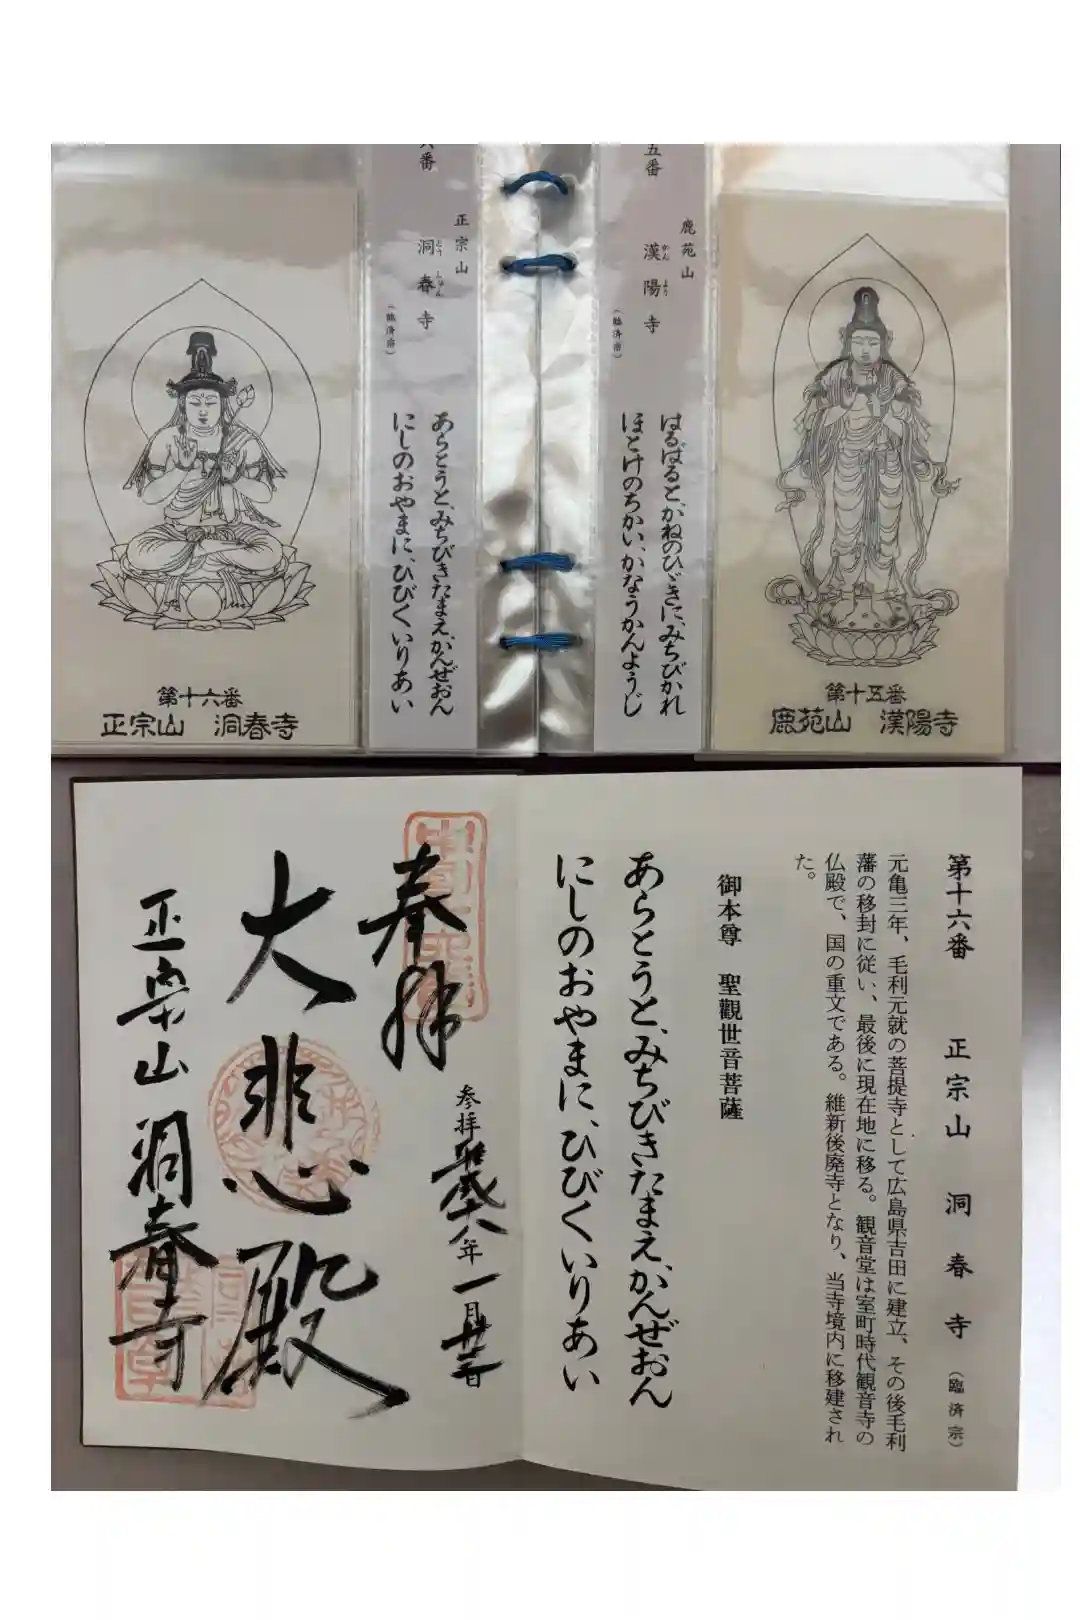 五番
鹿苑山
漢陽寺
かん よう
(臨済宗)
はるばると、かねのひゞきに、みちびかれ
ほとけのちかい、かなうかんようじ
第十五番
鹿苑山 漢陽寺
六番
正宗山
洞春寺
とう しゅん
(臨済宗)
あらとうと、みちびきたまえ、かんぜおん
にしのおやまに、ひびくいりあい
第十六番
正宗山 洞春寺
第十六番 正宗山 洞春寺 (臨済宗)
元亀三年、毛利元就の菩提寺として広島県吉田に建立、その後毛利
藩の移封に従い、最後に現在地に移る。観音堂は室町時代観音寺の
仏殿で、国の重文である。維新後廃寺となり、当寺境内に移建され
た。
御本尊 聖觀世音菩薩
あらとうと、みちびきたまえ、かんぜおん
にしのおやまに、ひびくいりあい
奉拝
参拝 年一月
大悲殿
正宗山洞春寺